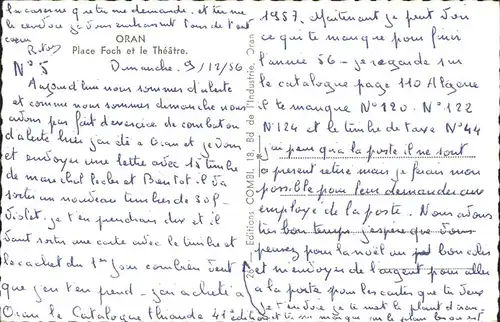 la caserne que tu me demande. et tu me
le cendoie je vous embrassant tous de tout
coeur
ORAN
Place Foch et le Théâtre.
N° 5 Dimanche. 9/12/56
Aujourd'hui nous sommes d'alerte
et comme nous sommes dimanche nous
avons pas fait d'exercice de combat ou
d'alerte hier j'ai été à Oran et j'ai vu
et envoyer une lettre avec 1 timbre
de marechal Lecler et Bientot il va
sortir un nouveau timbres de 30F.
violet. je t'en prendrais dus et il
vont sortir une carte avec le timbre et
le cachet du 1er jour combien veut
que j'en t'en prend. j'ai acheté a
Oran le Catalogue thiaude 41° édition
Editions COMBI, 18, Bd de l'Industrie, Oran
1957. Maintenant je peut voir
ce qui te manque pour finir
l'année 56 - je regarde sur
le catalogue page 110 Algérie
il te manque N° 120. N° 122
N° 124 et le timbre de taxe N° 44
j'ai peur que la poste il ne sont
a present retiré mais je ferais mon
possible pour leur demander aux
employé de la poste. Nous avons
très bon temps j'espère que vous
penserez pour la noël un bon colis
et m'envoyer de l'argent pour aller
a la poste pour les cartes que tu veux